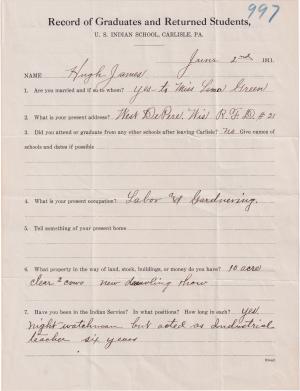 997
Record of Graduates and Returned Students,
U. S. INDIAN SCHOOL, CARLISLE, PA.
June 2nd 1911.
NAME Hugh James
1. Are you married and if so to whom? yes to Miss Lena Green
2. What is your present address? West De Pere, Wis R. F. D. # 21
3. Did you attend or graduate from any other schools after leaving Carlisle? no Give names of
schools and dates if possible
4. What is your present occupation? Labor & Gardnering.
5. Tell something of your present home
6. What property in the way of land, stock, buildings, or money do you have? 10 acre
clear 2 cows new dwelling
7. Have you been in the Indian Service? In what positions? How long in each? yes
night watchman but acted as Industrial
teacher six years
(Over)